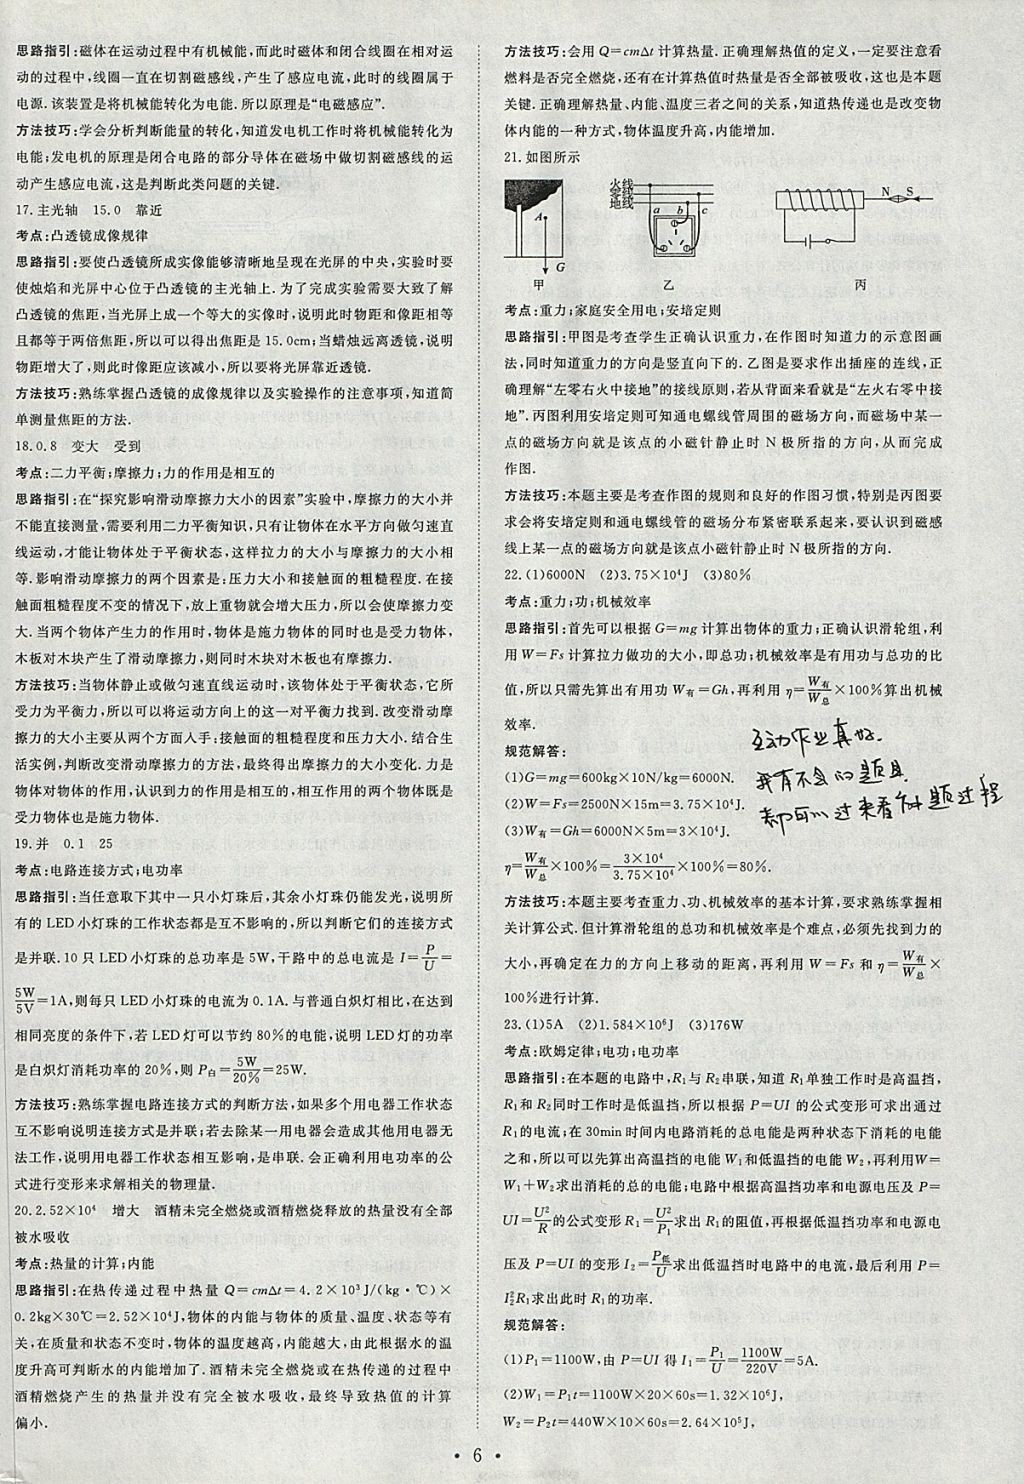 思路指引:磁体在运动过程中有机械能,而此时磁体和闭合线圈在相对运
动的过程中,线圈一直在切割磁感线,产生了感应电流,此时的线圈属于
电源.该装置是将机械能转化为电能.所以原理是“电磁感应”.
方法技巧:学会分析判断能量的转化,知道发电机工作时将机械能转化为
电能;发电机的原理是闭合电路的部分导体在磁场中做切割磁感线的运
动产生感应电流,这是判断此类问题的关键.
17.主光轴 15.0 靠近
考点:凸透镜成像规律
思路指引:要使凸透镜所成实像能够清晰地呈现在光屏的中央,实验时要
使烛焰和光屏中心位于凸透镜的主光轴上.为了完成实验需要大致了解
凸透镜的焦距,当光屏上成一个等大的实像时,说明此时物距和像距相等
且都等于两倍焦距,所以可以得出焦距是15.0cm;当蜡烛远离透镜,说明
物距增大了,则此时像距应该减小,所以要将光屏靠近透镜.
方法技巧:熟练掌握凸透镜的成像规律以及实验操作的注意事项,知道简
单测量焦距的方法.
18.0.8 变大 受到
考点:二力平衡;摩擦力;力的作用是相互的
思路指引:在“探究影响滑动摩擦力大小的因素”实验中,摩擦力的大小并
不能直接测量,需要利用二力平衡知识,只有让物体在水平方向做匀速直
线运动,才能让物体处于平衡状态,这样拉力的大小与摩擦力的大小相
等.影响滑动摩擦力的两个因素是:压力大小和接触面的粗糙程度.在接
触面粗糙程度不变的情况下,放上重物就会增大压力,所以会使摩擦力变
大.当两个物体产生力的作用时,物体是施力物体的同时也是受力物体,
木板对木块产生了滑动摩擦力,则同时木块对木板也有摩擦力.
方法技巧:当物体静止或做匀速直线运动时,该物体处于平衡状态,它所
受力为平衡力,所以可以将运动方向上的这一对平衡力找到.改变滑动摩
擦力的大小主要从两个方面入手;接触面的粗糙程度和压力大小.结合生
活实例,判断改变滑动摩擦力的方法,最终得出摩擦力的大小变化.力是
物体对物体的作用,认识到力的作用是相互的,相互作用的两个物体既是
受力物体也是施力物体.
19.并 0.1 25
考点:电路连接方式;电功率
思路指引:当任意取下其中一只小灯珠后,其余小灯珠仍能发光,说明所
有的LED小灯珠的工作状态都是互不影响的,所以判断它们的连接方式
是并联.10只LED小灯珠的总功率是5W,干路中的总电流是I=P/U=
5W/5V=1A,则每只LED小灯珠的电流为0.1A.与普通白炽灯相比,在达到
相同亮度的条件下,若LED灯可以节约80%的电能,说明LED灯的功率
是白炽灯消耗功率的20%,则P白=5W/20%=25W.
方法技巧:熟练掌握电路连接方式的判断方法,如果多个用电器工作状态
互不影响说明连接方式是并联;若去除某一用电器会造成其他用电器无
法工作,说明用电器工作状态相互影响,是串联.会正确利用电功率的公
式进行变形来求解相关的物理量.
20.2.52×10⁴ 增大 酒精未完全燃烧或酒精燃烧释放的热量没有全部
被水吸收
考点:热量的计算;内能
思路指引:在热传递过程中热量Q=cmΔt=4.2×10³J/(kg·℃)×
0.2kg×30℃=2.52×10⁴J,物体的内能与物体的质量、温度、状态等有
关,在质量和状态不变时,物体的温度越高,内能越大,由此根据水的温
度升高可判断水的内能增加了.酒精未完全燃烧或在热传递的过程中
酒精燃烧产生的热量并没有完全被水吸收,最终导致热值的计算
偏小.
方法技巧:会用Q=cmΔt计算热量.正确理解热值的定义,一定要注意看
燃料是否完全燃烧,还有在计算热值时热量是否全部被吸收,这也是本题
关键.正确理解热量、内能、温度三者之间的关系,知道热传递也是改变物
体内能的一种方式,物体温度升高,内能增加.
21.如图所示
火线
零线
地线
A
G
a b c
N S
甲 乙 丙
考点:重力;家庭安全用电;安培定则
思路指引:甲图是考查学生正确认识重力,在作图时知道力的示意图画
法,同时知道重力的方向是竖直向下的.乙图是要求作出插座的连线,正
确理解“左零右火中接地”的接线原则,若从背面来看就是“左火右零中接
地”.丙图利用安培定则可知通电螺线管周围的磁场方向,而磁场中某一
点的磁场方向就是该点的小磁针静止时N极所指的方向,从而完成
作图.
方法技巧:本题主要是考查作图的规则和良好的作图习惯,特别是丙图要
求会将安培定则和通电螺线管的磁场分布紧密联系起来,要认识到磁感
线上某一点的磁场方向就是该点小磁针静止时N极所指的方向.
22.(1)6000N (2)3.75×10⁴J (3)80%
考点:重力;功;机械效率
思路指引:首先可以根据G=mg计算出物体的重力;正确认识滑轮组,利
用W=Fs计算拉力做功的大小,即总功;机械效率是有用功与总功的比
值,所以只需先算出有用功W有=Gh,再利用η=W有/W总×100%算出机械
效率.
规范解答:
(1)G=mg=600kg×10N/kg=6000N.
(2)W=Fs=2500N×15m=3.75×10⁴J.
(3)W有=Gh=6000N×5m=3×10⁴J.
η=W有/W总×100%=3×10⁴/3.75×10⁴×100%=80%.
互动作业真好.
我有不会的题目
都可以过来看解题过程
方法技巧:本题主要考查重力、功、机械效率的基本计算,要求熟练掌握相
关计算公式.但计算滑轮组的总功和机械效率是个难点,必须先找到力的
大小,再确定在力的方向上移动的距离,再利用W=Fs和η=W有/W总×
100%进行计算.
23.(1)5A (2)1.584×10⁶J (3)176W
考点:欧姆定律;电功;电功率
思路指引:在本题的电路中,R₁与R₂串联,知道R₁单独工作时是高温挡,
R₁和R₂同时工作时是低温挡,所以根据P=UI的公式变形可求出通过
R₁的电流;在30min时间内电路消耗的总电能是两种状态下消耗的电能
之和,所以可以先算出高温挡的电能W₁和低温挡的电能W₂,再利用W=
W₁+W₂求出消耗的总的电能;电路中根据高温挡功率和电源电压及P=
UI=U²/R的公式变形R₁=U²/P₁求出R₁的阻值,再根据低温挡功率和电源电
压及P=UI的变形I₂=P低/U求出低温挡时电路中的电流,最后利用P=
I₂²R₁求出此时R₁的功率.
规范解答:
(1)P₁=1100W,由P=UI得I₁=P₁/U=1100W/220V=5A.
(2)W₁=P₁t=1100W×20×60s=1.32×10⁶J,
W₂=P₂t=440W×10×60s=2.64×10⁵J,
• 6 •